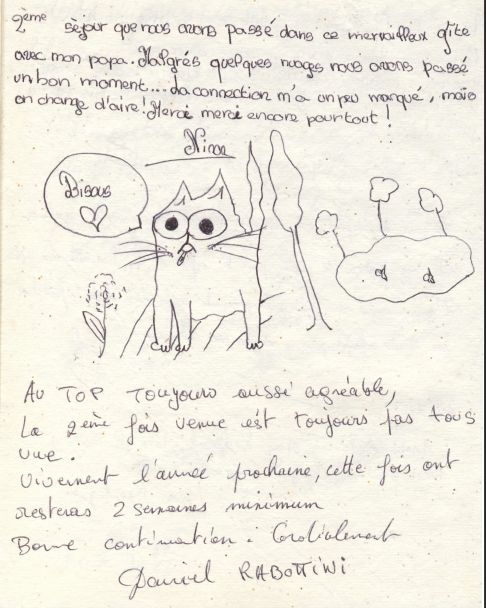 2ème séjour que nous avons passé dans ce merveilleux gîte
avec mon papa. Malgrés quelques nuages nous avons passé
un bon moment... La connection m'a un peu manqué, mais
on change d'aire! Merci merci encore pour tout!
Nina
Bisous
Au TOP Toujours aussi agréable,
La 2ème fois venue est toujours pas tous
vue.
Vivement l'année prochaine, cette fois ont
resteras 2 semaines minimum
Bonne continuation. Cordialement
Daniel RABOTTINI